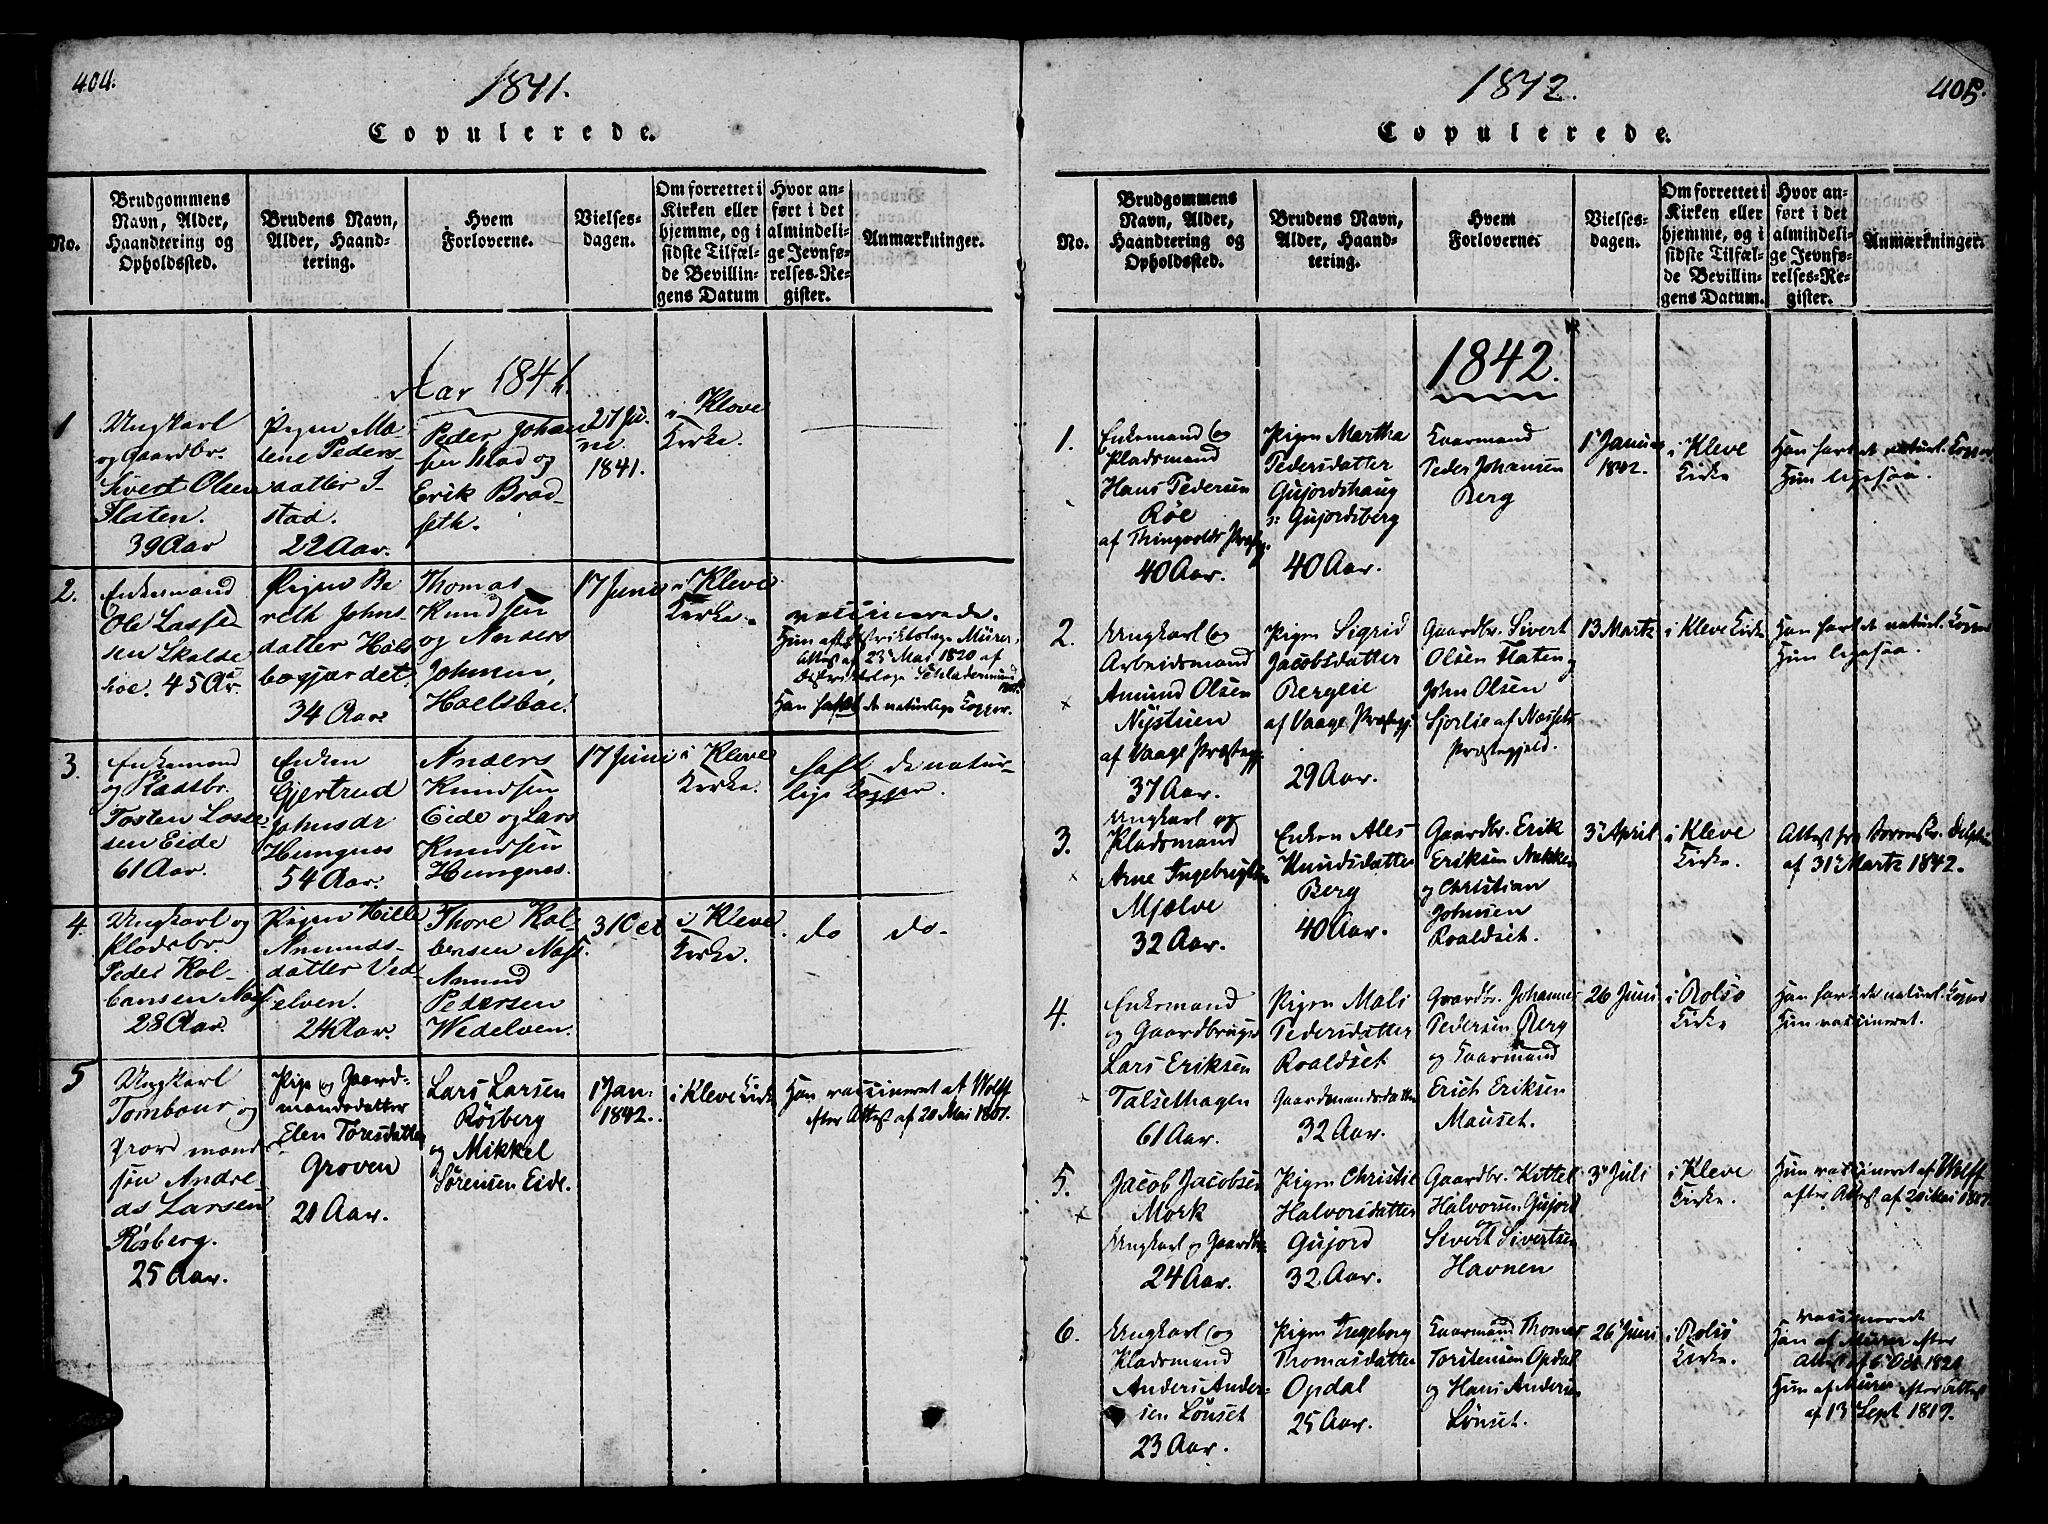 404.
1841.
Copulerede.
No.
Brudgommens
Navn, Alder,
Haandtering og
Opholdssted.
Brudens Navn,
Alder, Haand-
tering.
Hvem
Forloverne.
Vielses-
dagen.
Om forrettet i
Kirken eller
hjemme, og i
sidste Tilfæl-
de Bevillin-
gens Datum
Hvor an-
ført i det
almindeli-
ge Jevnfø-
relses-Re-
gister.
Anmærkninger.
Aar 1841.
1
Ungkarl
og Gaardbr.
Sivert Olsen
Flaten.
39 Aar
Pigen Ma-
lene Peders-
datter I-
stad.
22 Aar.
Peder Johan
sen Stad og
Erik Brad-
seth.
27 Ju-
ni
1841.
i Kleve
Kirke.
2.
Enkemand
Ole Lasse-
sen Skalde
hoe. 45 Aar
Pigen Be
reth Johns
datter Hols
bogjærdet.
34 Aar
Thomas
Knudsen
og Anders
Johnsen,
Hoelsboe.
17 Juni
i Kleve
Kirke.
vaccinerede.
Hun efter Distriktslæge Mürer,
Attest af 23 Mai 1820 af
Han havt de naturlige Kopper.
3.
Enkemand
og Pladsbr.
Tosten Lasse-
sen Eide
61 Aar.
Enken
Gjertrud
Johnsdr
Hungnes
54 Aar.
Anders
Knudsen
Eide og Lars
Knudsen
Hungnes.
17 Juni
i Kleve
Kirke.
haft de natur-
lige Kopper.
4.
Ungkarl og
Pladsbr.
Peder Kol-
bansen Næss
28 Aar.
Pigen Hille
Amunds-
datter Ved-
elven.
24 Aar.
Thore Kol-
bensen Næss.
Amund
Pedersen
Wedelven.
31 Oct
i Kleve
Kirke.
do do.
5
Ungkarl
Tambour og
Gaardmands
søn Andre-
as Larsen
Røsberg.
25 Aar.
Pige og Gaard-
mandsdatter
Elen Toresdatter
Groven
21 Aar.
Lars Larsen
Røsberg
og Mikkel
Sørensen Eide.
1 Jan.
1842.
i Kleve Kirke
Han vaccineret af Wolff
efter Attest af 20 Mai 1801.
1842.
405.
Copulerede.
No.
Brudgommens
Navn, Alder,
Haandtering og
Opholdssted.
Brudens Navn,
Alder, Haand-
tering.
Hvem
Forloverne.
Vielses-
dagen.
Om forrettet i
Kirken eller
hjemme, og i
sidste Tilfæl-
de Bevillin-
gens Datum.
Hvor an-
ført i det
almindeli-
ge Jevnfø-
relses-Re-
gister.
Anmærkninger.
1842.
1.
Enkemand og
Pladsmand
Hans Pedersen
Røe
af Thingvolds Præstegj.
40 Aar.
Pigen Martha
Pedersdatter
Gujordshaug
s: Gujordsberg
40 Aar.
Kaarmand
Peder Johansen
Berg
1 Januar
1842.
i Kleve
Kirke
Han havt de naturl. Kopper
Hun ligesaa.
2.
Ungkarl og
Arbeidsmand
Amund Olsen
Nystuen
af Vaage Præstegj.
37 Aar.
Pigen Sigrid
Jacobsdatter
Bergeie
af Vaage Præstegj.
29 Aar.
Gaardbr. Sivert
Olsen Flaten og
John Olsen
Sjorlie af Nøssets
Præstegjeld.
13 Marts
i Kleve Kirke
Han havt de naturl. Kopper
Hun ligesaa.
3.
Ungkarl og
Pladsmand
Arne Ingebrigtsen
Mjælve
32 Aar.
Enken Ales
Knudsdatter
Berg
40 Aar.
Gaardbr. Erik
Eriksen Nakken
og Christian
Johnsen
Roaldset.
3 April
i Kleve
Kirke.
Attest fra
af 31 Marts 1842.
4.
Enkemand
og Gaardbruger
Lars Eriksen
Talsethagen
61 Aar.
Pigen Mali
Pedersdatter
Roaldset
Gaardmandsdatter
32 Aar.
Gaardbr. Johannes
Pedersen Berg
og Kaarmand
Erich Eriksen
Mauset.
26 Juni
i Bolsø
Kirke
Han havt de naturl. Kopper
Hun vaccineret.
5.
Jacob Jacobsen
Mork
Ungkarl og Gaardbr.
24 Aar.
Pigen Christie
Halvorsdatter
Gujord
32 Aar.
Gaardbr. Kittel
Halvorsen Gujord
og
Sivert Sivertsen
Havnen
3 Juli
i Kleve
Kirke.
Hun vaccineret af Wolff
efter Attest af 20 Mai 1801.
6.
Ungkarl og
Pladsmand
Anders Ander-
sen Lønset
23 Aar.
Pigen Ingeborg
Thomasdatter
Opdal
25 Aar.
Kaarmand Thomas
Torstensen Opdal
og Hans Andersen
Lønset.
26 Juni
i Bolsø
Kirke.
vaccineret
Han af Mürer efter
Attest af 6 Oct 1820
Hun af Mürer efter Attest
af 13 Sept 1819.